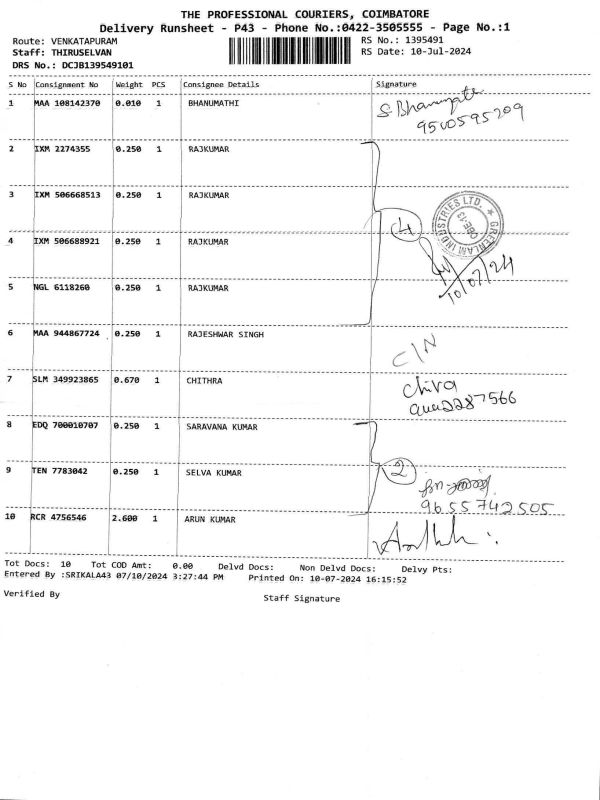 THE PROFESSIONAL COURIERS, COIMBATORE
Delivery Runsheet - P43 - Phone No.:0422-3505555 - Page No.:1
Route: VENKATAPURAM RS No.: 1395491
Staff: THIRUSELVAN RS Date: 10-Jul-2024
DRS No.: DCJB139549101
S No Consignment No Weight PCS Consignee Details Signature
1 MAA 108142370 0.010 1 BHANUMATHI S. Bhanumathi
9500595209
2 IXM 2274355 0.250 1 RAJKUMAR
3 IXM 506668513 0.250 1 RAJKUMAR
GREENLAM INDUSTRIES LTD. ★
4
4 IXM 506688921 0.250 1 RAJKUMAR
10/07/24
5 NGL 6118260 0.250 1 RAJKUMAR
6 MAA 944867724 0.250 1 RAJESHWAR SINGH C/N
7 SLM 349923865 0.670 1 CHITHRA
8 EDQ 700010707 0.250 1 SARAVANA KUMAR
9 TEN 7783042 0.250 1 SELVA KUMAR 2
9655742505
10 RCR 4756546 2.600 1 ARUN KUMAR
Tot Docs: 10 Tot COD Amt: 0.00 Delvd Docs: Non Delvd Docs: Delvy Pts:
Entered By :SRIKALA43 07/10/2024 3:27:44 PM Printed On: 10-07-2024 16:15:52
Verified By Staff Signature